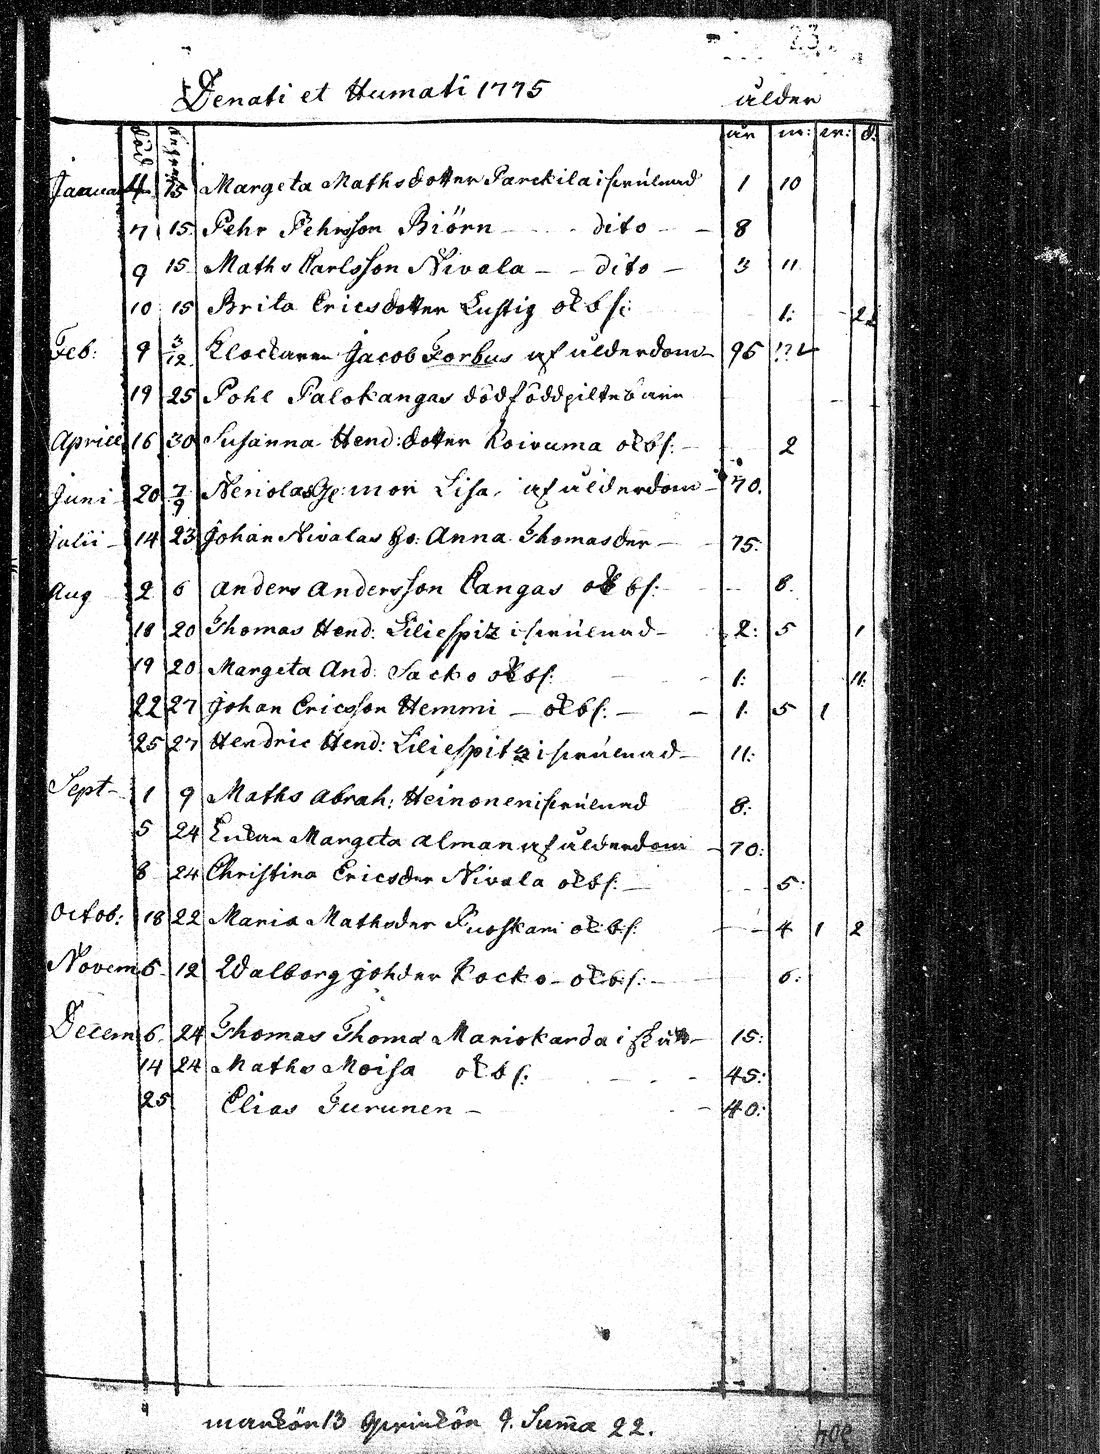 23.
Denati et Humati 1775 ålder
död begrafn år m: w: d:
Januar 4 15 Margeta Mathsdotter Parckila i strúlund 1 10
7 15 Pehr Pehrsson Biörn - - - dito - - 8
9 15 Maths Carlsson Nivala - - dito - 3 11
10 15 Brita Ericsdotter Lustig okbs: 1: 2
Feb: 9 3/12 Klockaren Jacob Forbus af ålderdom 95
19 25 Pohl Palokangas dödfödd piltebarn
Aprill 16 30 Susanna Hend: dotter Koivuma okbs: 2
Juni 20 7/9 mor Lisa, af ålderdom 70.
Julii 14 23 Johan Nivalas Anna Thomasder 75.
Aug 2 6 Anders Andersson Cangas okbs: 8.
18 20 Thomas Hend: Liliespitz i strúlund 2: 5 1
19 20 Margeta And: Sacko okbs: 1: 11
22 27 Johan Ericsson Hemmi - okbs: - - 1. 5 1
25 27 Hendric Hend: Liliespitz i strúlund - 11:
Sept - 1 9 Maths Abrah: Heinonen i strúlund 8:
5 24 Enkan Margeta Alman af ålderdom - 70:
8 24 Christina Ericsder Nivala okbs: - 5:
Octob: 18 22 Maria Mathsder okbs: 4 1 2
Novem 5 12 Walborg Johder Kocko - okbs: - 6:
Decem 6 24 Thomas Thoma Mariokarda i 15:
14 24 Maths Moisa okbs: 45:
25 Elias Turunen - 40:
mankön 13 qvinkön 9. Sum̄a 22.